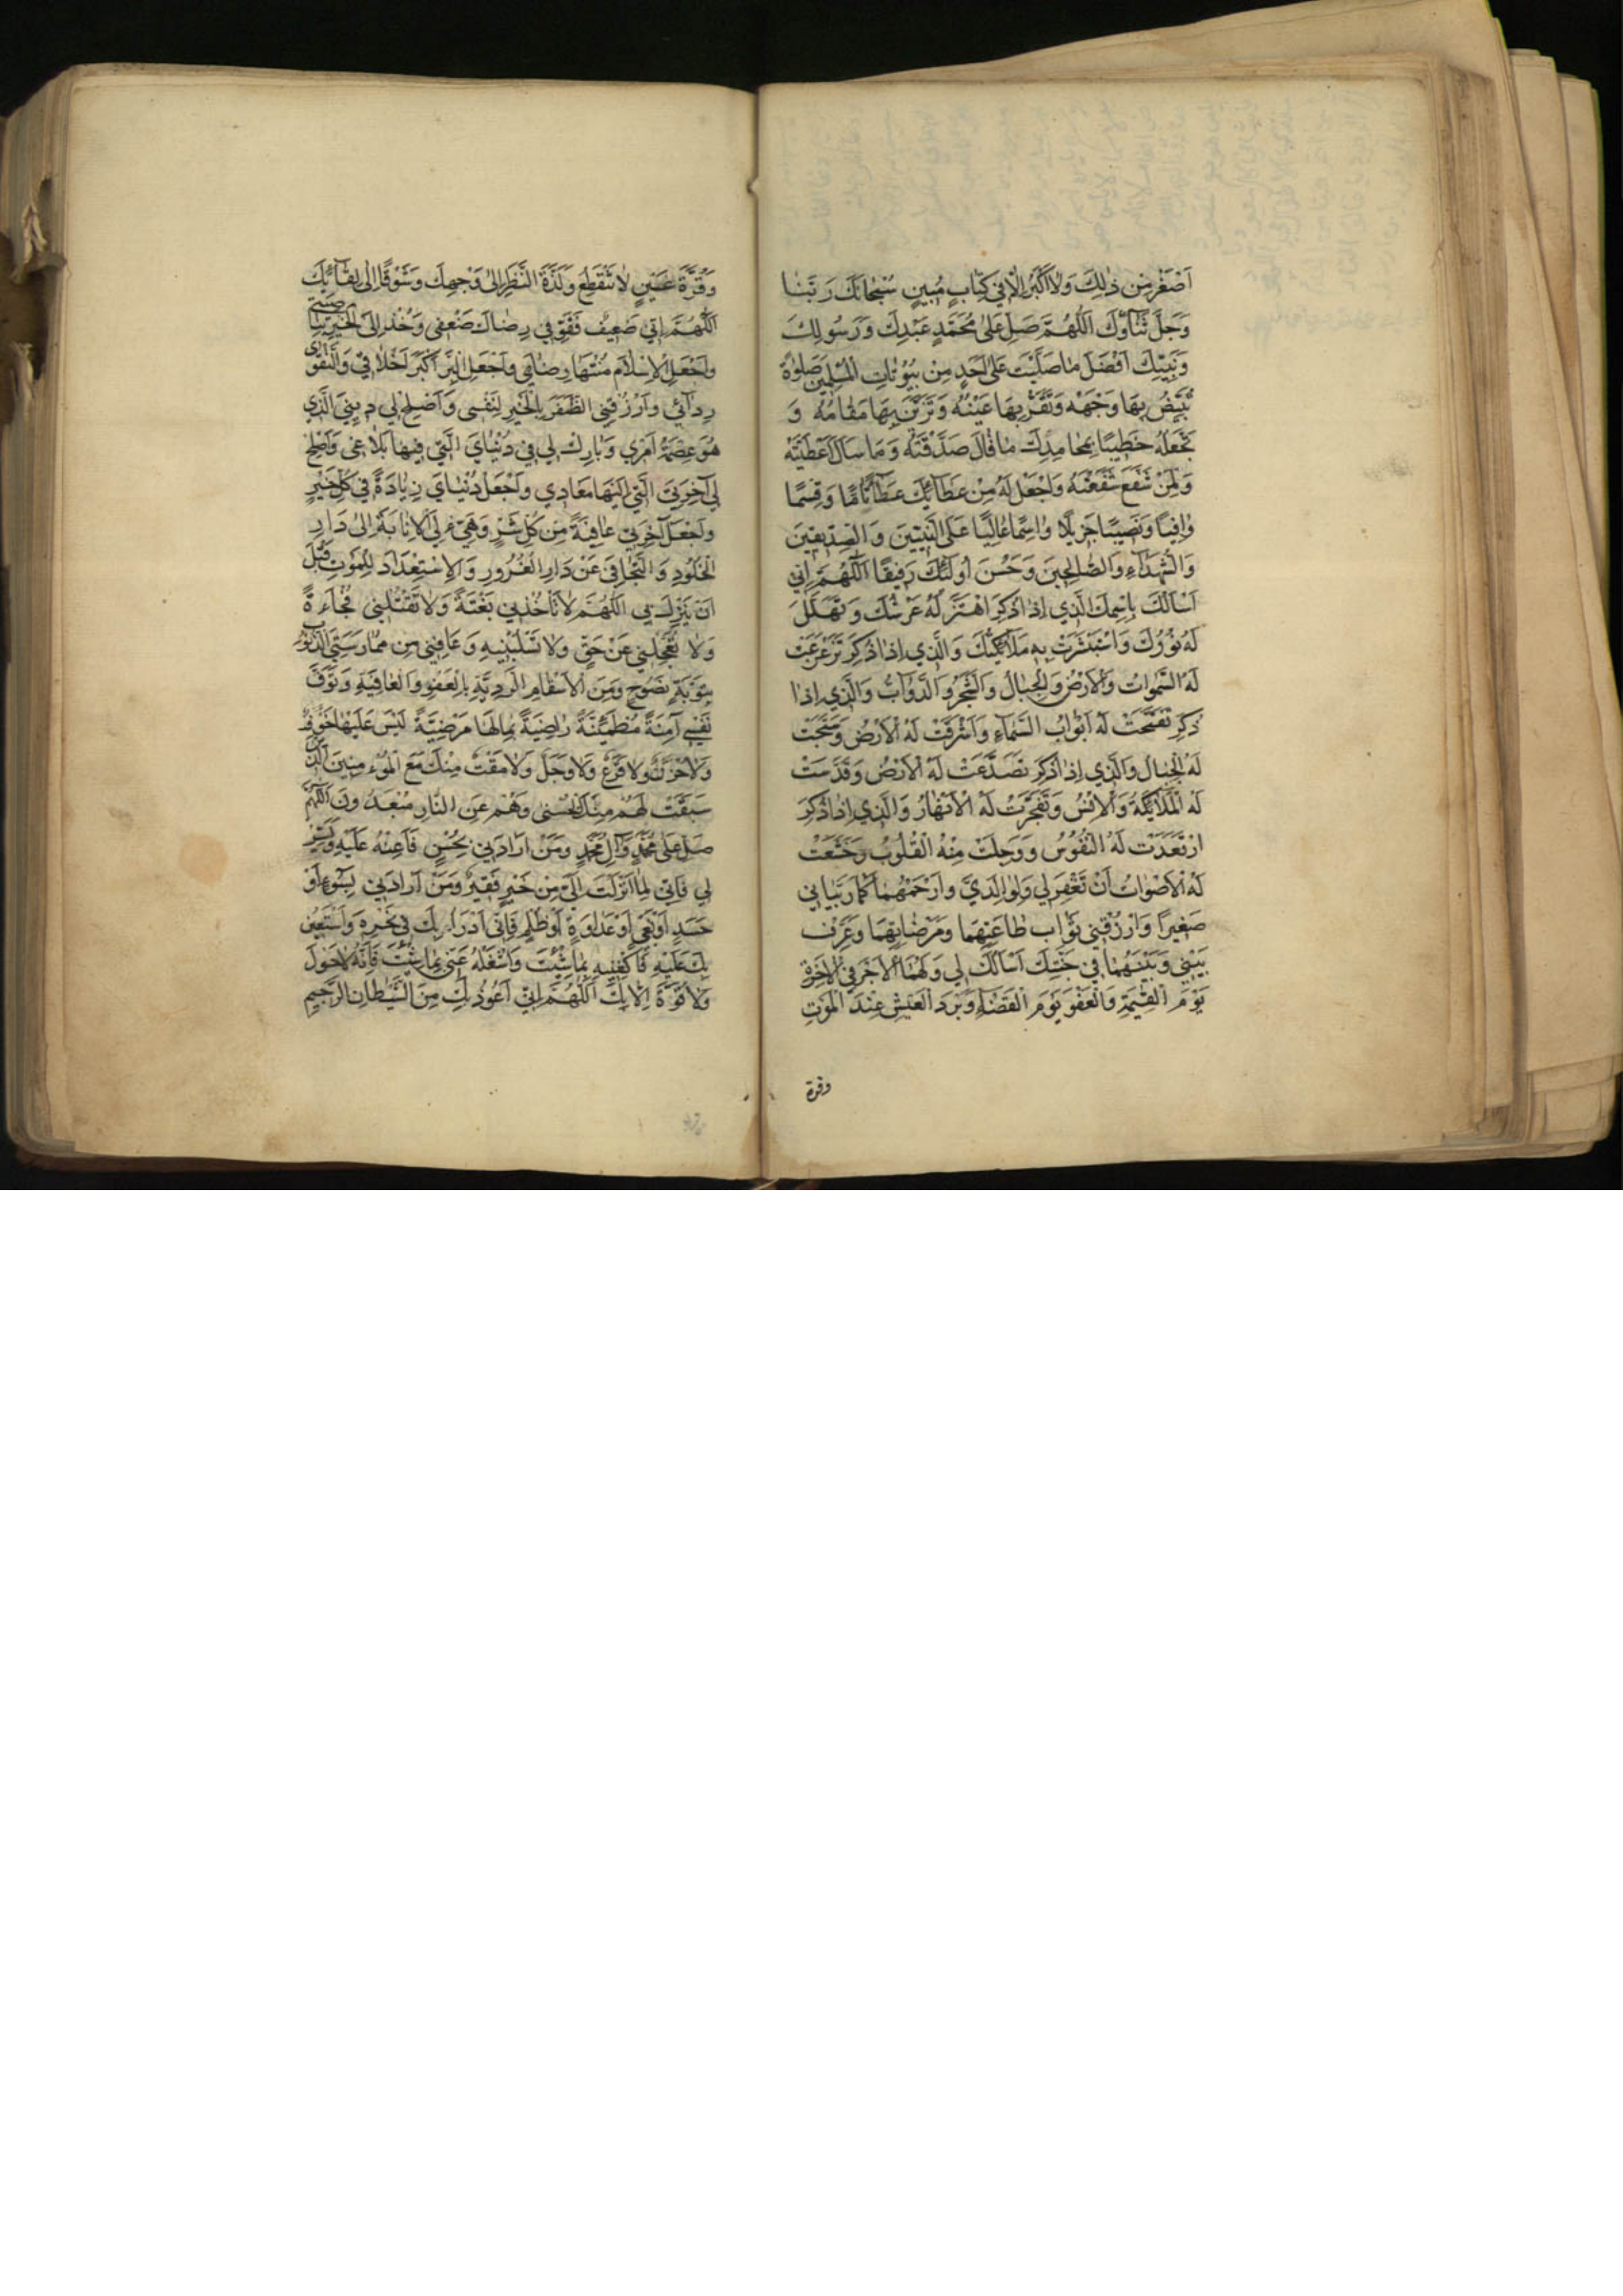 اَصْغَرُ مِنْ ذٰلِكَ وَلاٰ اَكْبَرُ اِلاّٰ فيٖ كِتٰابٍ مُبيٖنٍ سُبْحٰانَكَ رَبَّنٰا
وَجَلَّ ثَنٰاؤُكَ اَللّٰهُمَّ صَلِّ عَلىٰ مُحَمَّدٍ عَبْدِكَ وَرَسُولِكَ
وَنَبِيِّكَ اَفْضَلَ مٰا صَلَّيْتَ عَلىٰ اَحَدٍ مِنْ بُيُوتٰاتِ الْمُسْلِميٖنَ صَلوٰةً
تُبَيِّضُ بِهٰا وَجْهَهُ وَتُقِرُّ بِهٰا عَيْنَهُ وَتُزَيِّنُ بِهٰا مَقٰامَهُ وَ
تَجْعَلُهُ خَطيٖبًا بِمَحٰامِدِكَ مٰا قٰالَ صَدَّقْتَهُ وَمٰا سَاَلَ اَعْطَيْتَهُ
وَلِمَنْ شَفَعَ شَفَّعْتَهُ وَاجْعَلْ لَهُ مِنْ عَطٰائِكَ عَطٰاءً تٰامًّا وَقِسْمًا
وٰافِيًا وَنَصيٖبًا جَزيٖلًا وَاسْمًا عٰالِيًا عَلَى النَّبِيّيٖنَ وَالصِّدّيٖقيٖنَ
وَالشُّهَدٰاءِ وَالصّٰالِحيٖنَ وَحَسُنَ اُولٰئِكَ رَفيٖقًا اَللّٰهُمَّ اِنّيٖ
اَسْاَلُكَ بِاسْمِكَ الَّذيٖ اِذٰا ذُكِرَ اهْتَزَّ لَهُ عَرْشُكَ وَتَهَلَّلَ
لَهُ نُورُكَ وَاسْتَبْشَرَتْ بِهِ مَلاٰئِكَتُكَ وَالَّذيٖ اِذٰا ذُكِرَ تَزَعْزَعَتْ
لَهُ السَّمٰوٰاتُ وَالْاَرْضُ وَالْجِبٰالُ وَالشَّجَرُ وَالدَّوٰابُّ وَالَّذيٖ اِذٰا
ذُكِرَ تَفَتَّحَتْ لَهُ اَبْوٰابُ السَّمٰاءِ وَاَشْرَقَتْ لَهُ الْاَرْضُ وَسَبَّحَتْ
لَهُ الْجِبٰالُ وَالَّذيٖ اِذٰا ذُكِرَ تَصَدَّعَتْ لَهُ الْاَرْضُ وَقَدَّسَتْ
لَهُ الْمَلاٰئِكَةُ وَالْاِنْسُ وَتَفَجَّرَتْ لَهُ الْاَنْهٰارُ وَالَّذيٖ اِذٰا ذُكِرَ
ارْتَعَدَتْ لَهُ النُّفُوسُ وَوَجِلَتْ مِنْهُ الْقُلُوبُ وَخَشَعَتْ
لَهُ الْاَصْوٰاتُ اَنْ تَغْفِرَ ليٖ وَلِوٰالِدَيَّ وَارْحَمْهُمٰا كَمٰا رَبَّيٰانيٖ
صَغيٖرًا وَارْزُقْنيٖ ثَوٰابَ طٰاعَتِهِمٰا وَمَرْضٰاتِهِمٰا وَعَرِّفْ
بَيْنيٖ وَبَيْنَهُمٰا فيٖ جَنَّتِكَ اَسْاَلُكَ ليٖ وَلَهُمٰا الْاَجْرَ فِي الْاٰخِرَةِ
يَوْمَ الْقِيٰمَةِ وَالْعَفْوَ يَوْمَ الْقَضٰاءِ وَبَرْدَ الْعَيْشِ عِنْدَ الْمَوْتِ
وقرة
وَقُرَّةَ عَيْنٍ لاٰ تَنْقَطِعُ وَلَذَّةَ النَّظَرِ اِلىٰ وَجْهِكَ وَشَوْقًا اِلىٰ لِقٰائِكَ
اَللّٰهُمَّ اِنّيٖ ضَعيٖفٌ فَقَوِّ فيٖ رِضٰاكَ ضَعْفيٖ وَخُذْ اِلَى الْخَيْرِ بِنٰاصِيَتيٖ
وَاجْعَلِ الْاِسْلاٰمَ مُنْتَهٰا رِضٰايَ وَاجْعَلِ الْبِرَّ اَكْبَرَ اَخْلاٰقيٖ وَالتَّقْوٰى
رِدٰائيٖ وَارْزُقْنِي الظَّفَرَ بِالْخَيْرِ لِنَفْسيٖ وَاَصْلِحْ ليٖ ديٖنِيَ الَّذيٖ
هُوَ عِصْمَةُ اَمْريٖ وَبٰارِكْ ليٖ فيٖ دُنْيٰايَ الَّتيٖ فيٖهٰا بَلاٰغيٖ وَاَصْلِحْ
ليٖ اٰخِرَتِيَ الَّتيٖ اِلَيْهٰا مَعٰاديٖ وَاجْعَلْ دُنْيٰايَ زِيٰادَةً فيٖ كُلِّ خَيْرٍ
وَاجْعَلْ اٰخِرَتيٖ عٰافِيَةً مِنْ كُلِّ شَرٍّ وَهَيِّئْ لِيَ الْاِنٰابَةَ اِلىٰ دٰارِ
الْخُلُودِ وَالتَّجٰافِيَ عَنْ دٰارِ الْغُرُورِ وَالْاِسْتِعْدٰادَ لِلْمَوْتِ قَبْلَ
اَنْ يَنْزِلَ بيٖ اَللّٰهُمَّ لاٰ تَاْخُذْنيٖ بَغْتَةً وَلاٰ تَقْتُلْنيٖ فُجٰاءَةً
وَلاٰ تُعْجِلْنيٖ عَنْ حَقٍّ وَلاٰ تَسْلُبْنيٖهِ وَعٰافِنيٖ مِنْ مُمٰارَسَةِ الذُّنُوبِ
بِتَوْبَةٍ نَصُوحٍ وَمِنَ الْاَسْقٰامِ الرَّدِيَّةِ بِالْعَفْوِ وَالْعٰافِيَةِ وَتَوَفَّ
نَفْسيٖ اٰمِنَةً مُطْمَئِنَّةً رٰاضِيَةً بِمٰا لَهٰا مَرْضِيَّةً لَيْسَ عَلَيْهٰا خَوْفٌ
وَلاٰ حُزْنٌ وَلاٰ فَزَعٌ وَلاٰ وَجَلٌ وَلاٰ مَقْتٌ مِنْكَ مَعَ الْمُؤْمِنيٖنَ الَّذيٖنَ
سَبَقَتْ لَهُمْ مِنْكَ الْحُسْنىٰ وَهُمْ عَنِ النّٰارِ مُبْعَدُونَ اَللّٰهُمَّ
صَلِّ عَلىٰ مُحَمَّدٍ وَاٰلِ مُحَمَّدٍ وَمَنْ اَرٰادَنيٖ بِحُسْنٍ فَاَعِنْهُ عَلَيْهِ وَيَسِّرْهُ
ليٖ فَاِنّيٖ لِمٰا اَنْزَلْتَ اِلَيَّ مِنْ خَيْرٍ فَقيٖرٌ وَمَنْ اَرٰادَنيٖ بِسُوءٍ اَوْ
حَسَدٍ اَوْ بَغْيٍ اَوْ عَدٰاوَةٍ اَوْ ظُلْمٍ فَاِنّيٖ اَدْرَاُ بِكَ فيٖ نَحْرِهِ وَاَسْتَعيٖنُ
بِكَ عَلَيْهِ فَاكْفِنيٖهِ بِمٰا شِئْتَ وَاشْغَلْهُ عَنّيٖ بِمٰا شِئْتَ فَاِنَّهُ لاٰ حَوْلَ
وَلاٰ قُوَّةَ اِلاّٰ بِكَ اَللّٰهُمَّ اِنّيٖ اَعُوذُ بِكَ مِنَ الشَّيْطٰانِ الرَّجيٖمِ